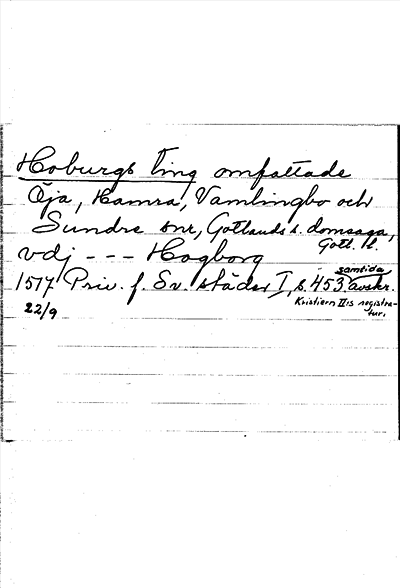 Hoburgs ting omfattade
Öja, Hamra, Vamlingbo och
Sundre snr, Gotlands s. domsaga,
Gotl. l.
vdj --- Hogborg
1517 Priv. f. Sv. städer I, s. 453. samtida avskr.
22/9 Kristiern II:s registra-
tur.